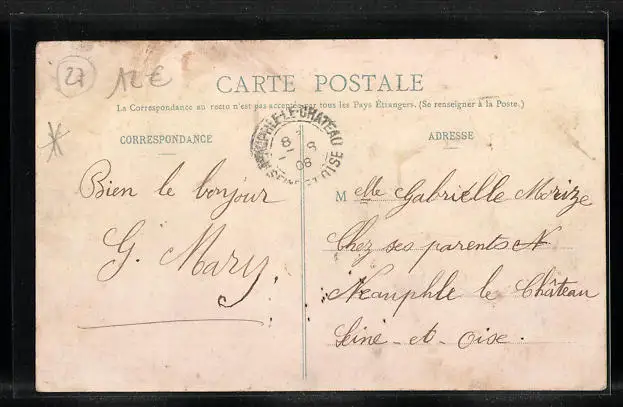 27
12 €
CARTE POSTALE
La Correspondance au recto n'est pas acceptée par tous les Pays Étrangers. (Se renseigner à la Poste.)
CORRESPONDANCE
Bien le bonjour
G. Mary.
NEAUPHLE-LE-CHATEAU
8
8
08
SEINE-ET-OISE
ADRESSE
M elle Gabrielle Morize
Chez ses parents
Neauphle le Château
Seine-et-Oise.